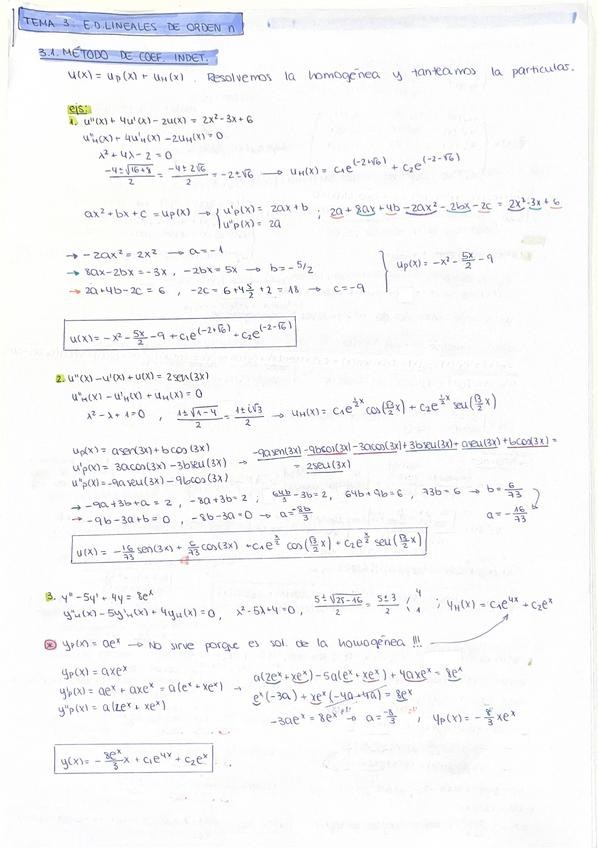 TEMA 3. E.D.LINEALES DE ORDEN n
3.1. MÉTODO DE COEF. INDET.
u(x) = up(x) + uH(x) . Resolvemos la homogénea y tanteamos la particular.
ejs:
1. u''(x) + 4u'(x) - 2u(x) = 2x² - 3x + 6
u''H(x) + 4u'H(x) - 2uH(x) = 0
λ² + 4λ - 2 = 0
(-4 ± √(16+8))/2 = (-4 ± 2√6)/2 = -2 ± √6 → uH(x) = c1e^(-2+√6) + c2e^(-2-√6)
ax² + bx + c = up(x) → { u'p(x) = 2ax + b ; 2a + 8ax + 4b - 2ax² - 2bx - 2c = 2x² - 3x + 6
u''p(x) = 2a
→ -2ax² = 2x² → a = -1
→ 8ax - 2bx = -3x , -2bx = 5x → b = -5/2 } up(x) = -x² - 5x/2 - 9
→ 2a + 4b - 2c = 6 , -2c = 6 + 4 5/2 + 2 = 18 → c = -9
u(x) = -x² - 5x/2 - 9 + c1e^(-2+√6) + c2e^(-2-√6)
2. u''(x) - u'(x) + u(x) = 2sen(3x)
u''H(x) - u'H(x) + uH(x) = 0
λ² - λ + 1 = 0 , (1 ± √(1-4))/2 = (1 ± i√3)/2 → uH(x) = c1e^(1/2 x) cos(√3/2 x) + c2e^(1/2 x) seu(√3/2 x)
up(x) = asen(3x) + bcos(3x)
u'p(x) = 3acos(3x) - 3bseu(3x) → -9asen(3x) - 9bcos(3x) - 3acos(3x) + 3bseu(3x) + aseu(3x) + bcos(3x) =
u''p(x) = -9aseu(3x) - 9bcos(3x) = 2seu(3x)
→ -9a + 3b + a = 2 , -8a + 3b = 2 ; 64b/3 - 3b = 2 , 64b + 9b = 6 , 73b = 6 → b = 6/73
→ -9b - 3a + b = 0 , -8b - 3a = 0 → a = -8b/3 a = -16/73
u(x) = -16/73 sen(3x) + 6/73 cos(3x) + c1e^(x/2) cos(√3/2 x) + c2e^(x/2) seu(√3/2 x)
3. y'' - 5y' + 4y = 8e^x
y''H(x) - 5y'H(x) + 4yH(x) = 0 , λ² - 5λ + 4 = 0 , (5 ± √(25-16))/2 = (5 ± 3)/2 { 4 , 1 ; yH(x) = c1e^4x + c2e^x
* yp(x) = ae^x → No sirve porque es sol. de la homogénea !!!
yp(x) = axe^x
y'p(x) = ae^x + axe^x = a(e^x + xe^x) → a(2e^x + xe^x) - 5a(e^x + xe^x) + 4axe^x = 8e^x
y''p(x) = a(2e^x + xe^x) e^x(-3a) + xe^x(-4a + 4a) = 8e^x
-3ae^x = 8e^x → a = -8/3 ; yp(x) = -8/3 xe^x
y(x) = -8e^x/3 x + c1e^4x + c2e^x